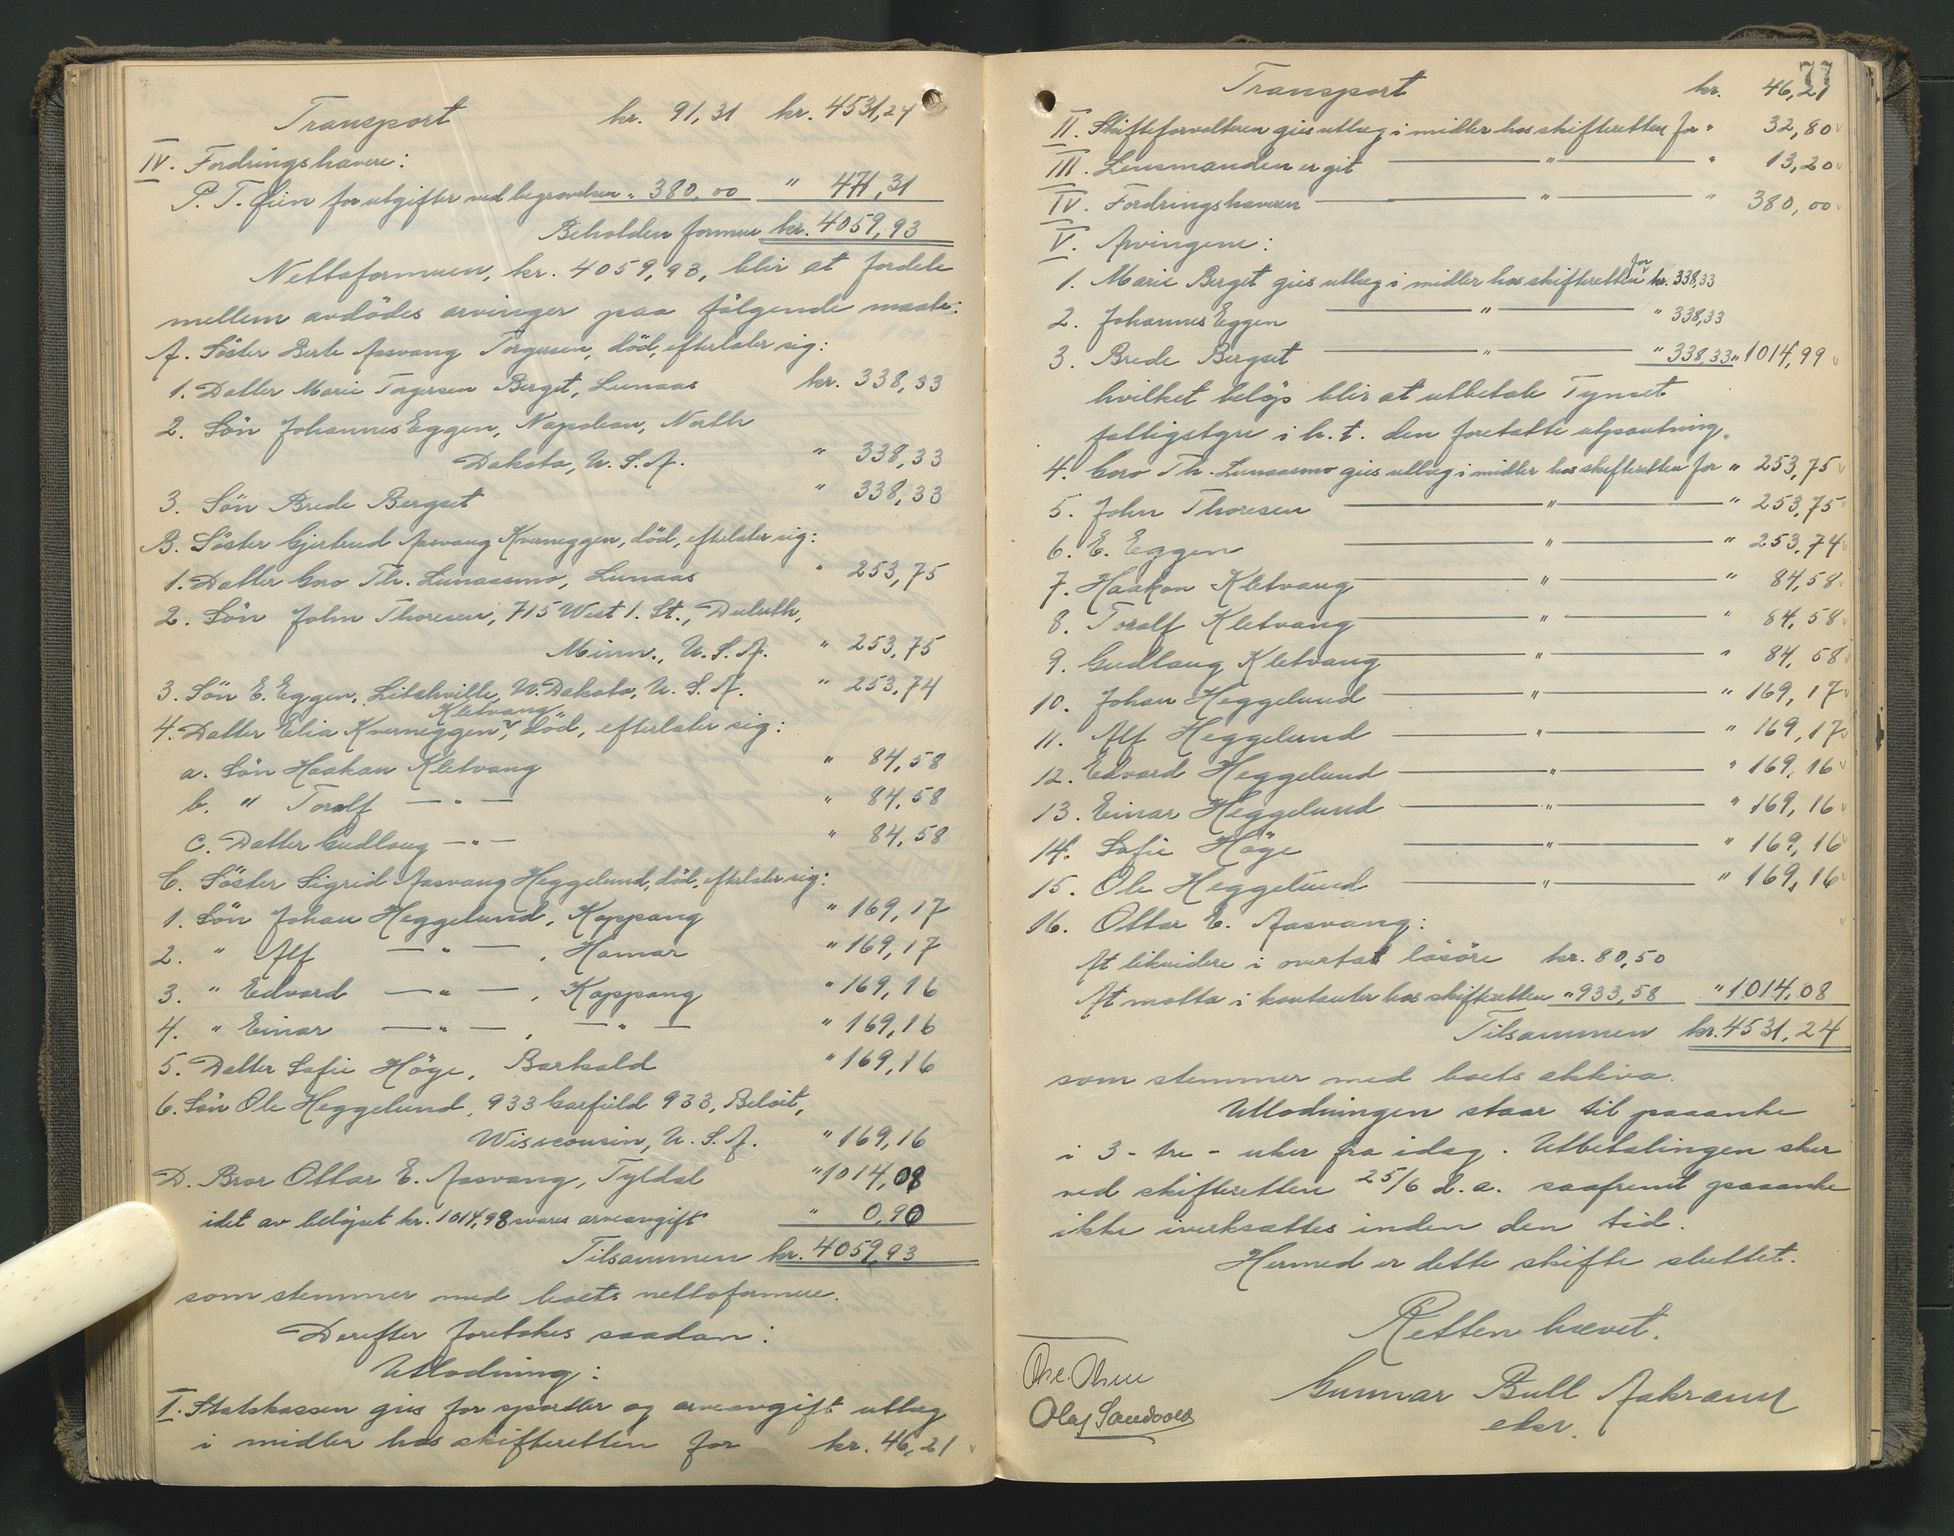 Transport kr. 91,31 kr. 4531,24
IV. Fordringshavere:
P. T. Øien for utgifter ved begravelsen " 380,00 " 471,31
Beholden formue kr. 4059,93
Nettoformuen, kr. 4059,93, blir at fordele
mellem avdødes arvinger paa følgende maate:
A. Söster Berte Aasvang Torgersen, död, efterlater sig:
1. Datter Marie Torgersen Berget, Lunaas kr. 338,33
2. Sön Johannes Eggen, Napoleon, North
Dakota, U.S.A. " 338,33
3. Sön Brede Bergset " 338,33
B. Söster Gjertrud Aasvang Kverneggen, död, efterlater sig:
1. Datter Goro Th. Lunaasmo, Lunaas " 253,75
2. Sön John Thoresen, 715 West 1. St., Duluth,
Minn., U.S.A. " 253,75
3. Sön E. Eggen, Litchville, N. Dakota, U.S.A. " 253,74
Kletvang
4. Datter Elia Kverneggen, död, efterlater sig:
a. Sön Haakon Kletvang " 84,58
b. " Toralf — " — " 84,58
c. Datter Gudlaug — " — " 84,58
C. Söster Sigrid Aasvang Heggelund, död, efterlater sig:
1. Sön Johan Heggelund, Koppang " 169,17
2. " Alf — " — , Hamar " 169,17
3. " Edvard — " — , Koppang " 169,16
4. " Einar — " — , — " — " 169,16
5. Datter Sofie Höge, Barkald " 169,16
6. Sön Ole Heggelund, 933 Garfield 933, Beloit,
Wisconsin, U.S.A. " 169,16
D. Bror Ottar E. Aasvang, Tyldal " 1014,08
idet av beløpet kr. 1014,98 svares arveavgift " 0,90
Tilsammen kr. 4059,93
som stemmer med boets nettoformue.
Derefter foretokes saadan:
Utlodning:
I. Statskassen gies for sportler og arveavgift utlæg
i midler hos skifteretten for kr. 46,21
77
Transport kr. 46,21
II. Skifteforvalteren gies utlæg i midler hos skifteretten for " 32,80
III. Lensmanden er git — " — " 13,20
IV. Fordringshaveren — " — " 380,00
V. Arvingene:
1. Marie Berget gies utlæg i midler hos skifteretten for kr. 338,33
2. Johannes Eggen — " — " 338,33
3. Brede Bergset — " — " 338,33 " 1014,99
hvilket beløp blir at utbetale Tynset
fattigstyre i h. t. den foretatte utpantning.
4. Goro Th. Lunaasmo gies utlæg i midler hos skifteretten for " 253,75
5. John Thoresen — " — " 253,75
6. E. Eggen — " — " 253,74
7. Haakon Kletvang — " — " 84,58
8. Toralf Kletvang — " — " 84,58
9. Gudlaug Kletvang — " — " 84,58
10. Johan Heggelund — " — " 169,17
11. Alf Heggelund — " — " 169,17
12. Edvard Heggelund — " — " 169,16
13. Einar Heggelund — " — " 169,16
14. Sofie Höge — " — " 169,16
15. Ole Heggelund — " — " 169,16
16. Ottar E. Aasvang:
At likvidere i overtat løsøre kr. 80,50
At motta i kontanter hos skifteretten " 933,58 " 1014,08
Tilsammen kr. 4531,24
som stemmer med boets aktiva.
Utlodningen staar til paaanke
i 3 - tre - uker fra idag. Utbetalingen sker
ved skifteretten 25/6 d.a. saafremt paaanke
ikke iverksættes inden den tid.
Hermed er dette skifte sluttet.
Retten hævet.
Gunnar Bull Aakrann
Ole Olsen
Olaf Sandvold